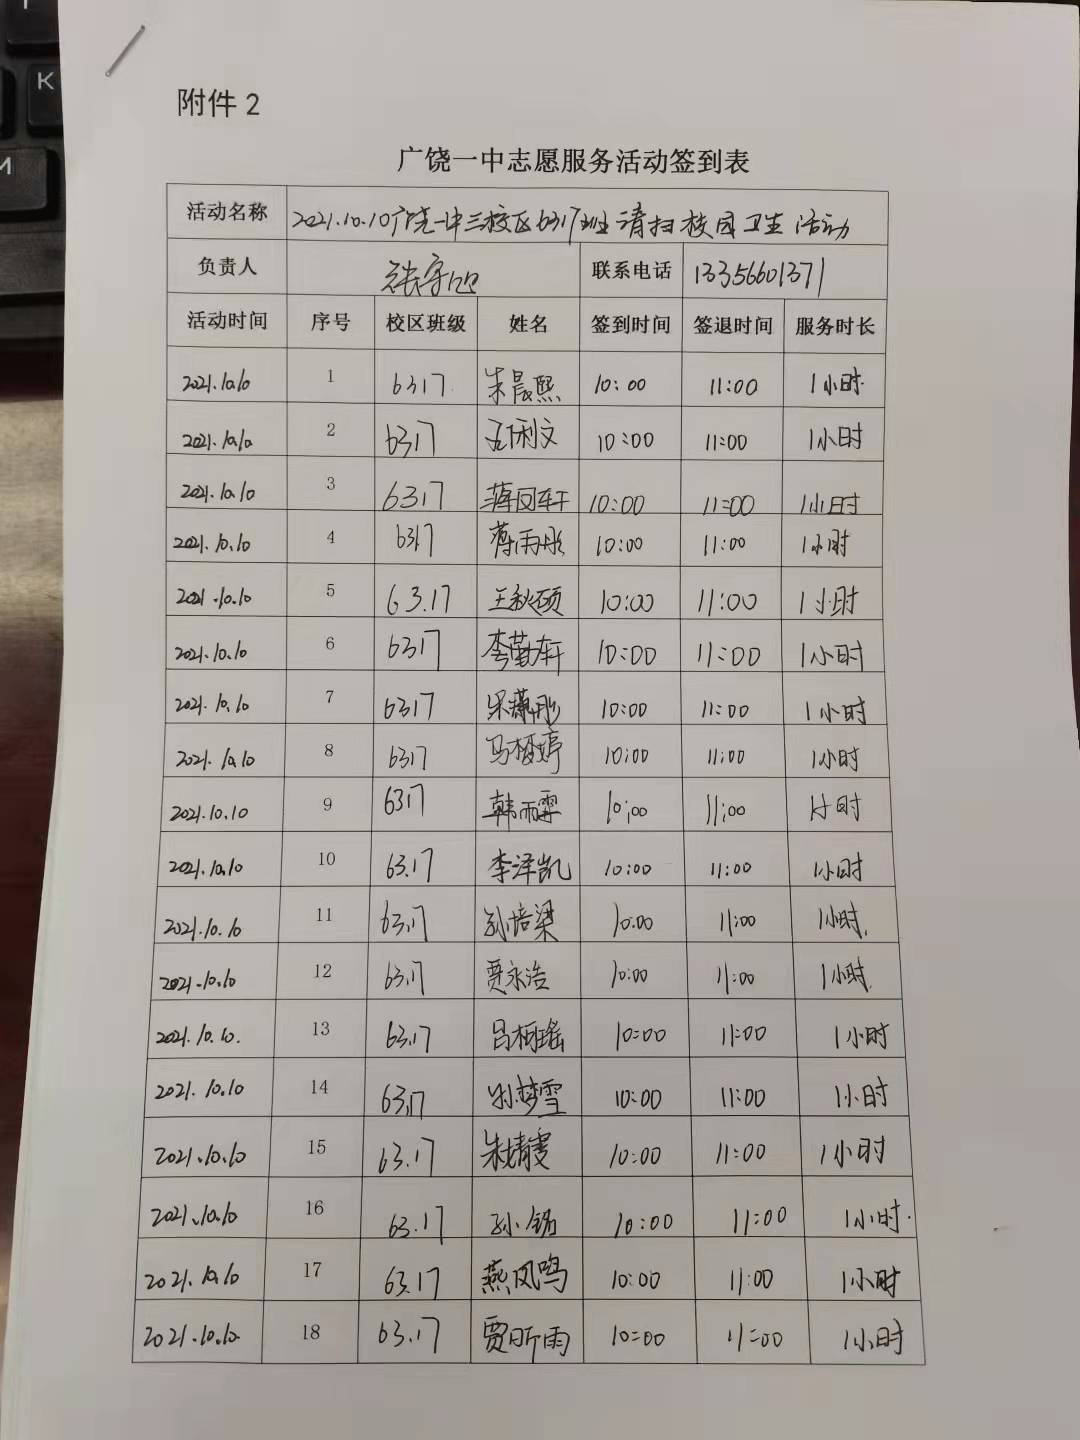 K
M
附件 2
广饶一中志愿服务活动签到表
活动名称 2021.10.10广饶一中三校区6317班清扫校园卫生活动
负责人 联系电话 13356601371
活动时间 序号 校区班级 姓名 签到时间 签退时间 服务时长
2021.10.10 1 6317 朱晨熙 10:00 11:00 1小时
2021.10.10 2 6317 10:00 11:00 1小时
2021.10.10 3 6317 10:00 11:00 1小时
2021.10.10 4 6317 蒋雨彤 10:00 11:00 1小时
2021.10.10 5 63.17 王秋硕 10:00 11:00 1小时
2021.10.10 6 6317 10:00 11:00 1小时
2021.10.10 7 6317 10:00 11:00 1小时
2021.10.10 8 6317 10:00 11:00 1小时
2021.10.10 9 6317 韩雨霏 10:00 11:00 1小时
2021.10.10 10 63.17 李泽凯 10:00 11:00 1小时
2021.10.10 11 63.17 孙培梁 10:00 11:00 1小时.
2021.10.10 12 63.17 贾永浩 10:00 11:00 1小时.
2021.10.10. 13 63.17 吕柯瑶 10:00 11:00 1小时
2021.10.10 14 63.17 10:00 11:00 1小时
2021.10.10 15 63.17 10:00 11:00 1小时
2021.10.10 16 63.17 孙铭 10:00 11:00 1小时.
2021.10.10 17 63.17 燕凤鸣 10:00 11:00 1小时
2021.10.10 18 63.17 贾昕雨 10:00 11:00 1小时